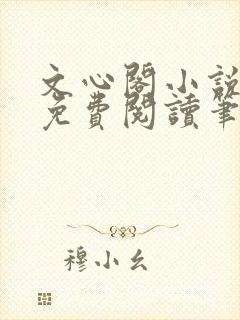 文心閣小說
免費閱讀筆
穆小幺